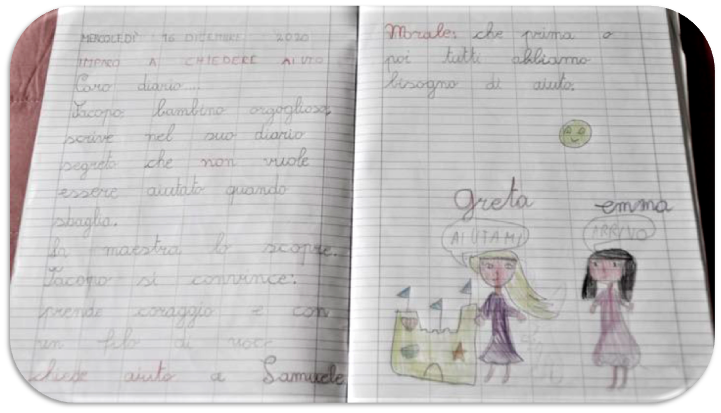 MERCOLEDÌ 16 DICEMBRE 2020
IMPARO A CHIEDERE AIUTO
Caro diario...
Jacopo bambino orgoglioso,
scrive nel suo diario
segreto che non vuole
essere aiutato quando
sbaglia.
La maestra lo scopre.
Jacopo si convince:
prende coraggio e con
un filo di voce
chiede aiuto a Samuele.
Morale: che prima o
poi tutti abbiamo
bisogno di aiuto.
greta
emma
AIUTAMI
ARRIVO